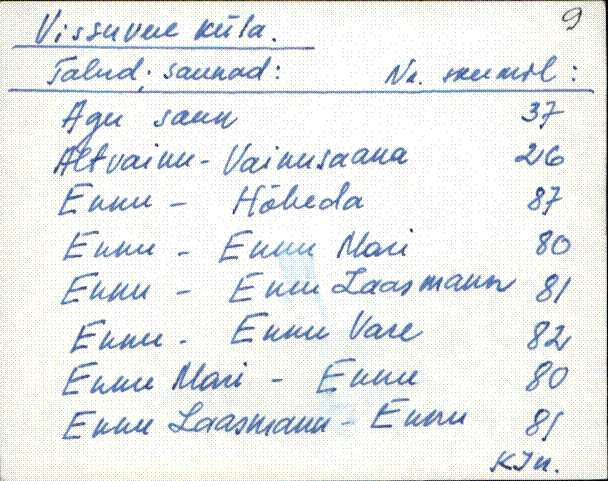 9
Vissuvere küla.
Talud; saunad: Nr. skeemil:
Agu saun 37
Altvainu - Vainusaana 26
Ennu - Hõbeda 87
Ennu - Ennu Mari 80
Ennu - Ennu Laasmann 81
Ennu - Ennu Vare 82
Ennu Mari - Ennu 80
Ennu Laasmann - Ennu 81